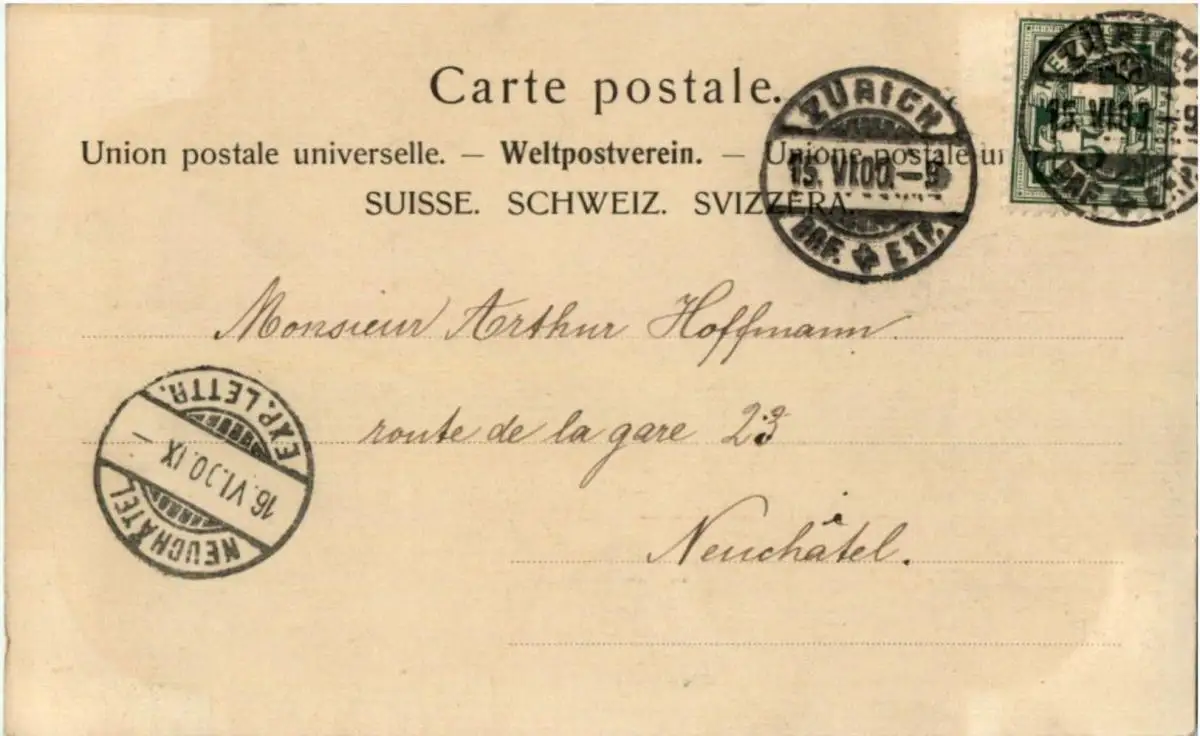 Carte postale.
Union postale universelle. — Weltpostverein. — Unione postale un
SUISSE. SCHWEIZ. SVIZZERA.
ZÜRICH
15. VI.00.–9
BRF. EXP.
ZÜRICH
15. VI.00
BRF. EXP.
5
Monsieur Arthur Hoffmann.
route de la gare 23
Neuchâtel.
EXP. LETTR.
16. VI.00. IX –
NEUCHÂTEL